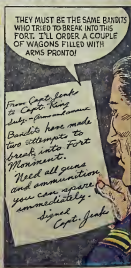 THEY MUST BE THE SAME BANDITS
WHO TRIED TO BREAK INTO THIS
FORT. I'LL ORDER A COUPLE
OF WAGONS FILLED WITH
ARMS PRONTO!
From Capt. Jenks
to Capt. King
Subj:-Arms and ammunition
Bandits have made
two attempts to
break into Fort
Monment.
Need all guns
and ammunition
you can spare
immediately.
Signed
Capt. Jenks